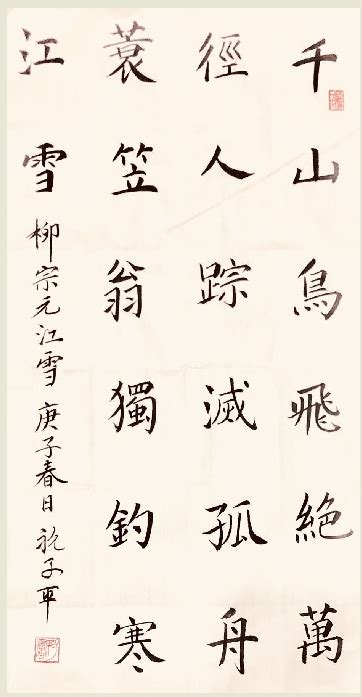 千山鳥飛絕萬
徑人踪滅孤舟
蓑笠翁獨釣寒
江雪
柳宗元江雪庚子春日